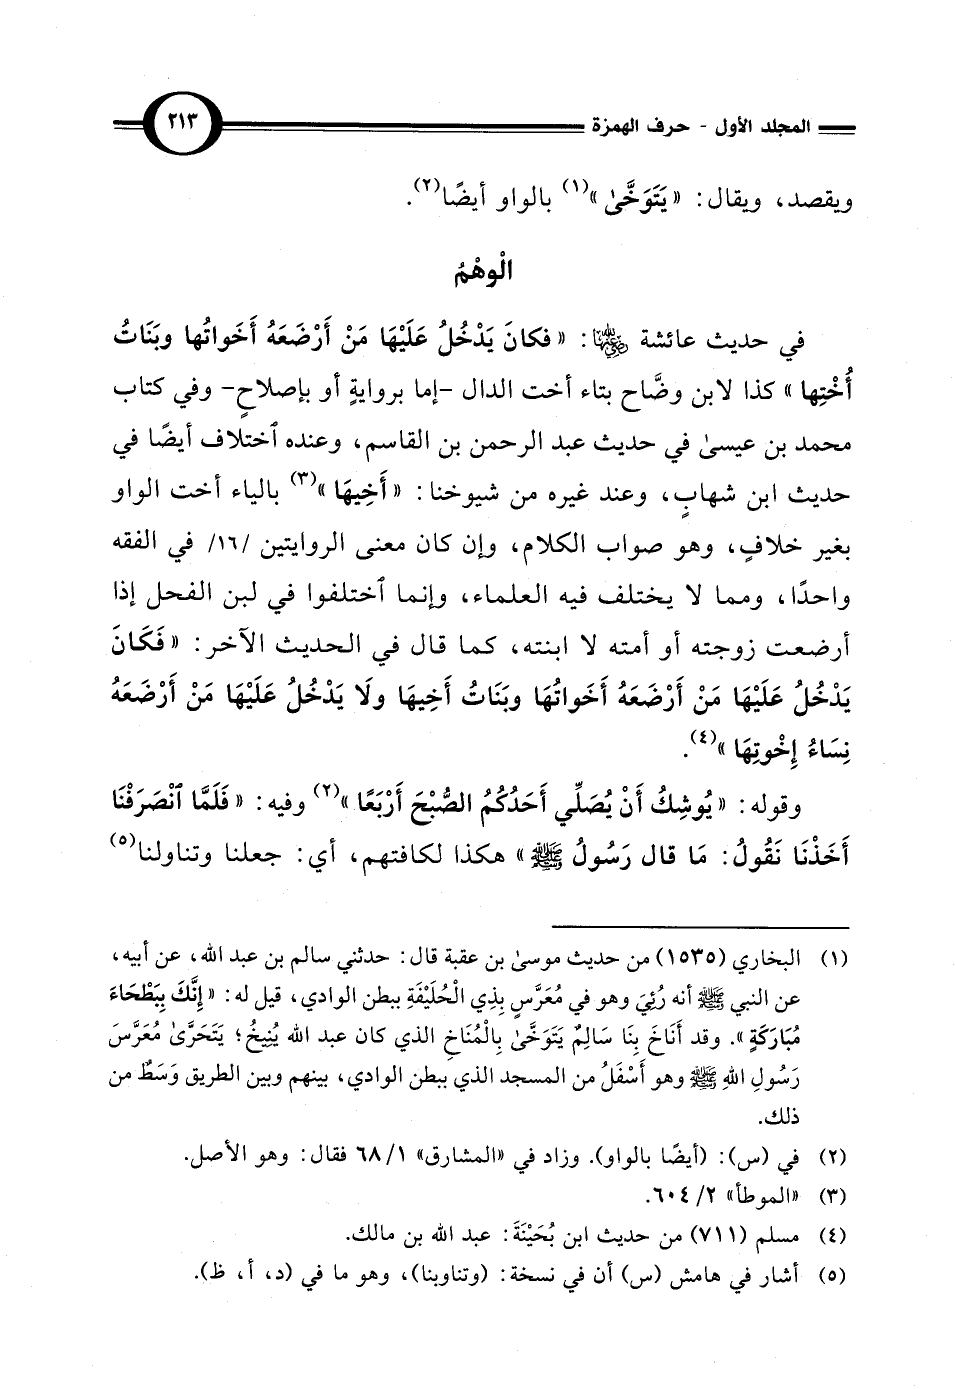 المجلد الأول - حرف الهمزة ٢١٣
ويقصد، ويقال: «يَتَوَخَّىٰ»(١) بالواو أيضًا(٢).
الْوهْمُ
في حديث عائشة رضي الله عنها: «فكانَ يَدْخُلُ عَلَيْهَا مَنْ أَرْضَعَهُ أَخَواتُها وبَنَاتُ
أُخْتِها» كذا لابن وضَّاح بتاء أخت الدال -إما بروايةٍ أو بإصلاحٍ- وفي كتاب
محمد بن عيسىٰ في حديث عبد الرحمن بن القاسم، وعنده ٱختلاف أيضًا في
حديث ابن شهابٍ، وعند غيره من شيوخنا: «أَخِيهَا»(٣) بالياء أخت الواو
بغير خلافٍ، وهو صواب الكلام، وإن كان معنى الروايتين /١٦/ في الفقه
واحدًا، ومما لا يختلف فيه العلماء، وإنما ٱختلفوا في لبن الفحل إذا
أرضعت زوجته أو أمته لا ابنته، كما قال في الحديث الآخر: «فَكَانَ
يَدْخُلُ عَلَيْهَا مَنْ أَرْضَعَهُ أَخَواتُهَا وبَنَاتُ أَخِيهَا ولَا يَدْخُلُ عَلَيْهَا مَنْ أَرْضَعَهُ
نِسَاءُ إِخْوتِهَا»(٤).
وقوله: «يُوشِكُ أَنْ يُصَلِّي أَحَدُكُمُ الصُّبْحَ أَرْبَعًا»(٢) وفيه: «فَلَمَّا ٱنْصَرَفْنَا
أَخَذْنَا نَقُولُ: مَا قال رَسُولُ ﷺ» هكذا لكافتهم، أي: جعلنا وتناولنا(٥)
(١) البخاري (١٥٣٥) من حديث موسىٰ بن عقبة قال: حدثني سالم بن عبد الله، عن أبيه،
عن النبي ﷺ أنه رُئِيَ وهو في مُعَرَّسٍ بِذِي الْحُلَيْفَةِ ببطن الوادي، قيل له: «إِنَّكَ بِبَطْحَاءَ
مُبَارَكَةٍ». وقد أَنَاخَ بِنَا سَالِمٌ يَتَوَخَّىٰ بِالْمُنَاخِ الذي كان عبد الله يُنِيخُ؛ يَتَحَرَّىٰ مُعَرَّسَ
رَسُولِ اللهِ ﷺ وهو أَسْفَلُ من المسجد الذي ببطن الوادي، بينهم وبين الطريق وَسَطٌ من
ذلك.
(٢) في (س): (أيضًا بالواو). وزاد في «المشارق» ١/ ٦٨ فقال: وهو الأصل.
(٣) «الموطأ» ٢/ ٦٠٤.
(٤) مسلم (٧١١) من حديث ابن بُحَيْنَةَ: عبد الله بن مالك.
(٥) أشار في هامش (س) أن في نسخة: (وتناوبنا)، وهو ما في (د، أ، ظ).